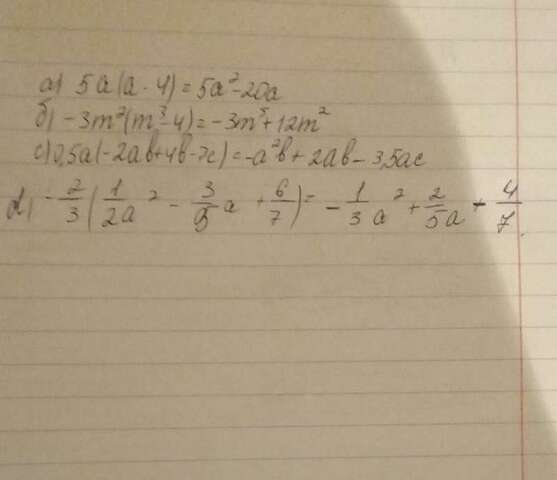 а) 5a(a - 4) = 5a² - 20a
б) -3m²(m³ - 4) = -3m⁵ + 12m²
c) 0,5a(-2ab + 4b - 7c) = -a²b + 2ab - 3,5ac
d) -2/3 (1/2a² - 3/5 a + 6/7) = -1/3 a² + 2/5a - 4/7